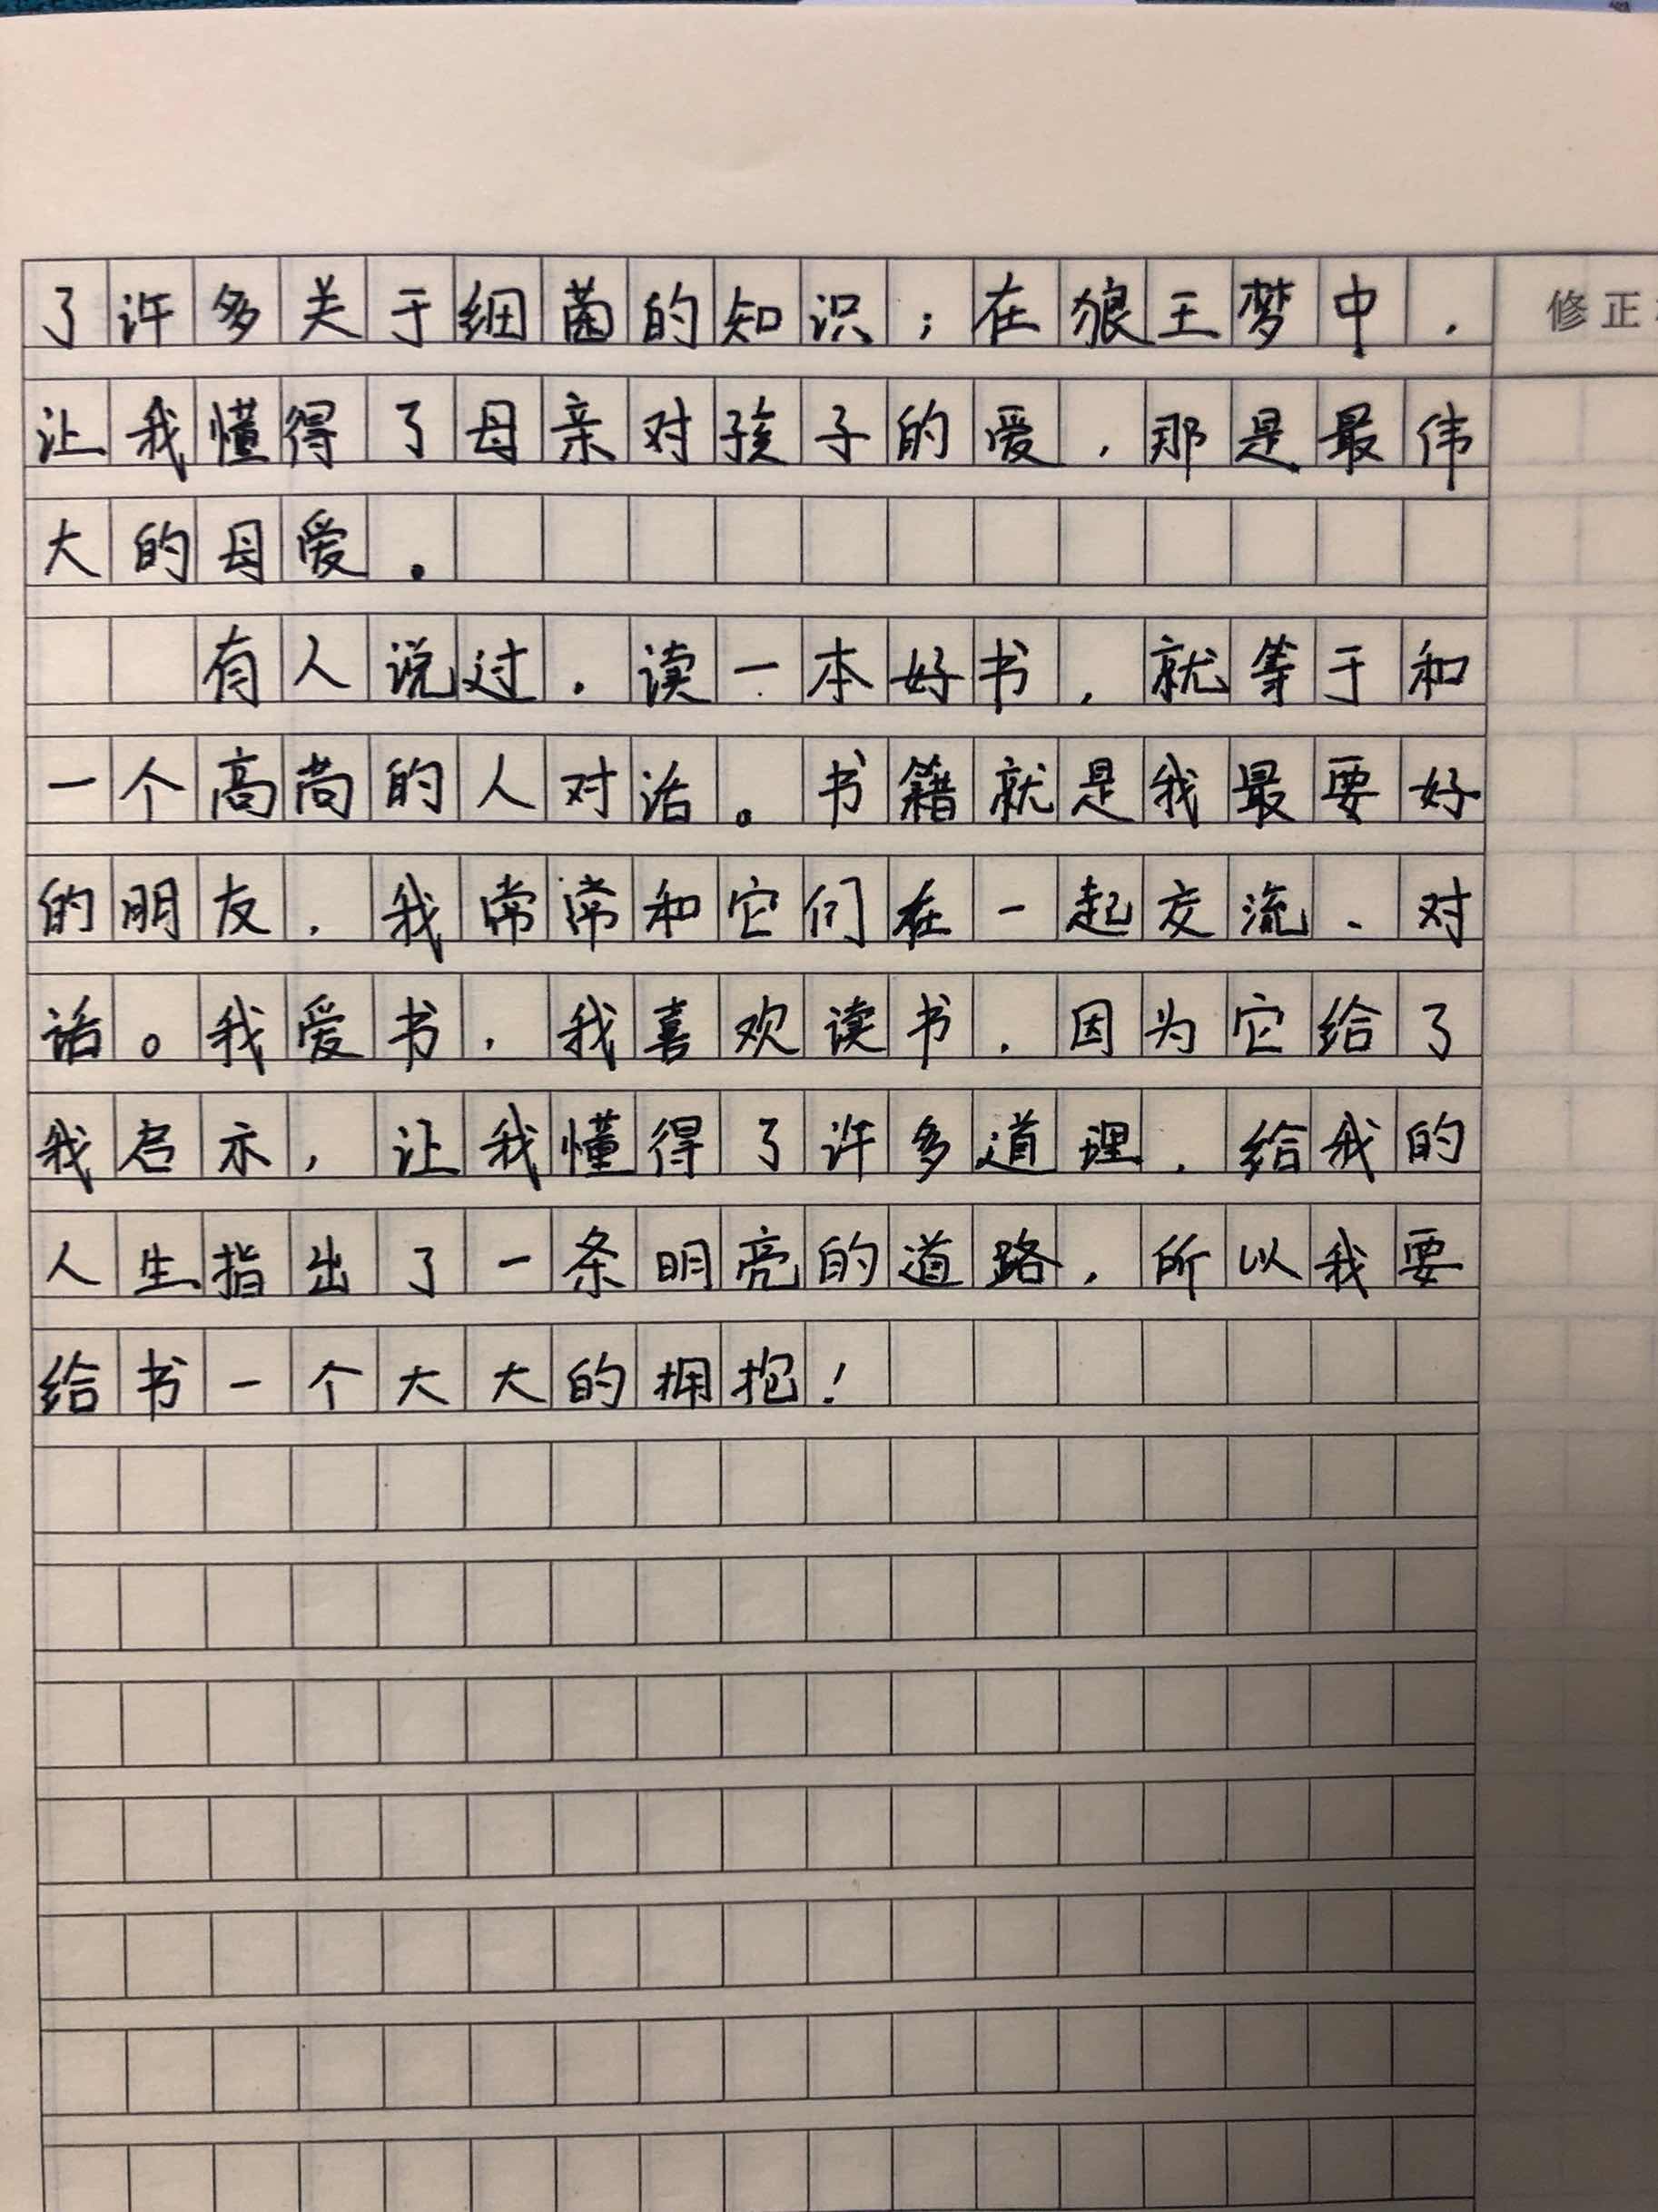 了许多关于细菌的知识；在狼王梦中，
修正
让我懂得了母亲对孩子的爱，那是最伟
大的母爱。
有人说过，读一本好书，就等于和
一个高尚的人对话。书籍就是我最要好
的朋友，我常常和它们在一起交流、对
话。我爱书，我喜欢读书，因为它给了
我启示，让我懂得了许多道理，给我的
人生指出了一条明亮的道路，所以我要
给书一个大大的拥抱！